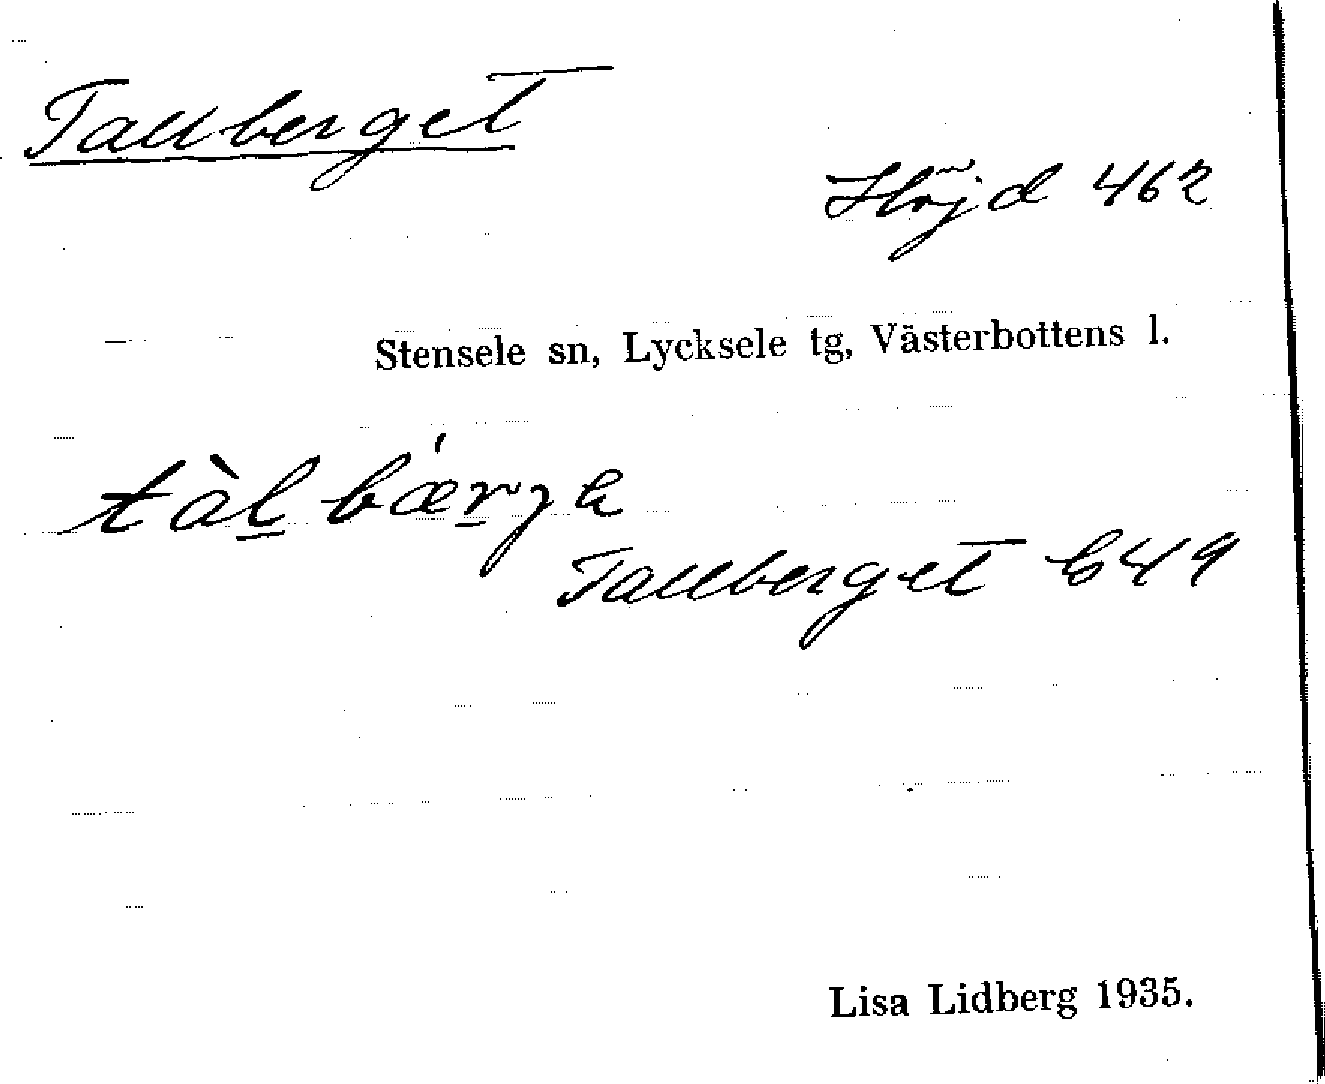 Tallberget
Höjd 462
Stensele sn, Lycksele tg, Västerbottens l.
tàl̲bǽr̲ja
Tallberget E49
Lisa Lidberg 1935.